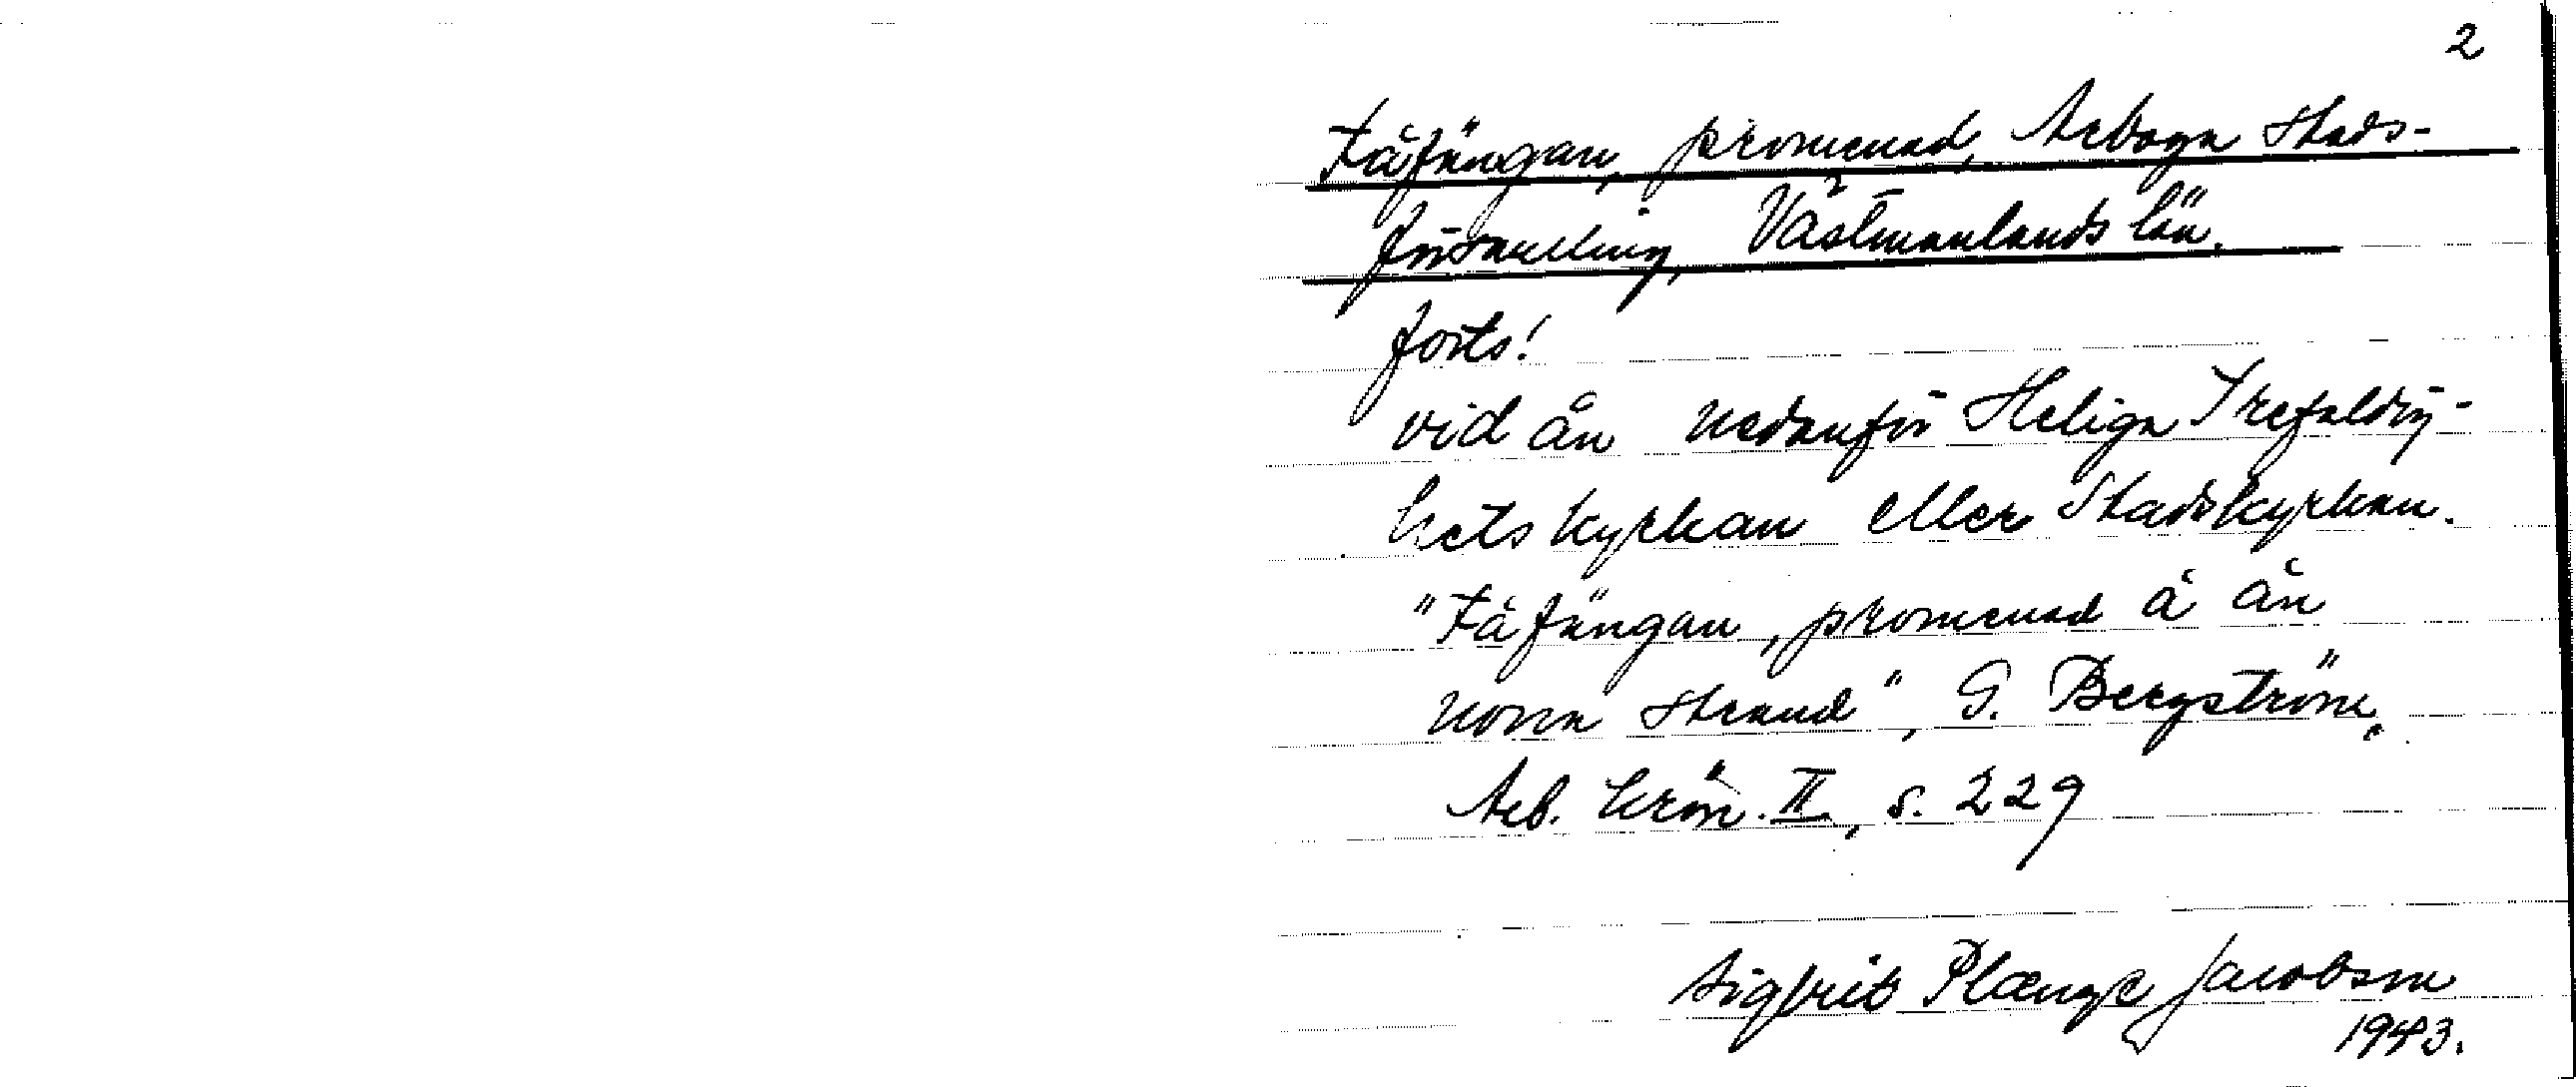 2
Fåfängan, promenad, Arboga stads-
församling, Västmanlands län.
forts!
vid ån nedanför Heliga Trefaldig-
hets kyrkan eller Stadskyrkan.
"Fåfängan, promenad å ån
norra strand", G. Bergström,
Arb. krön. II, s. 229
Sigbrit Plænge Jacobson
1943.